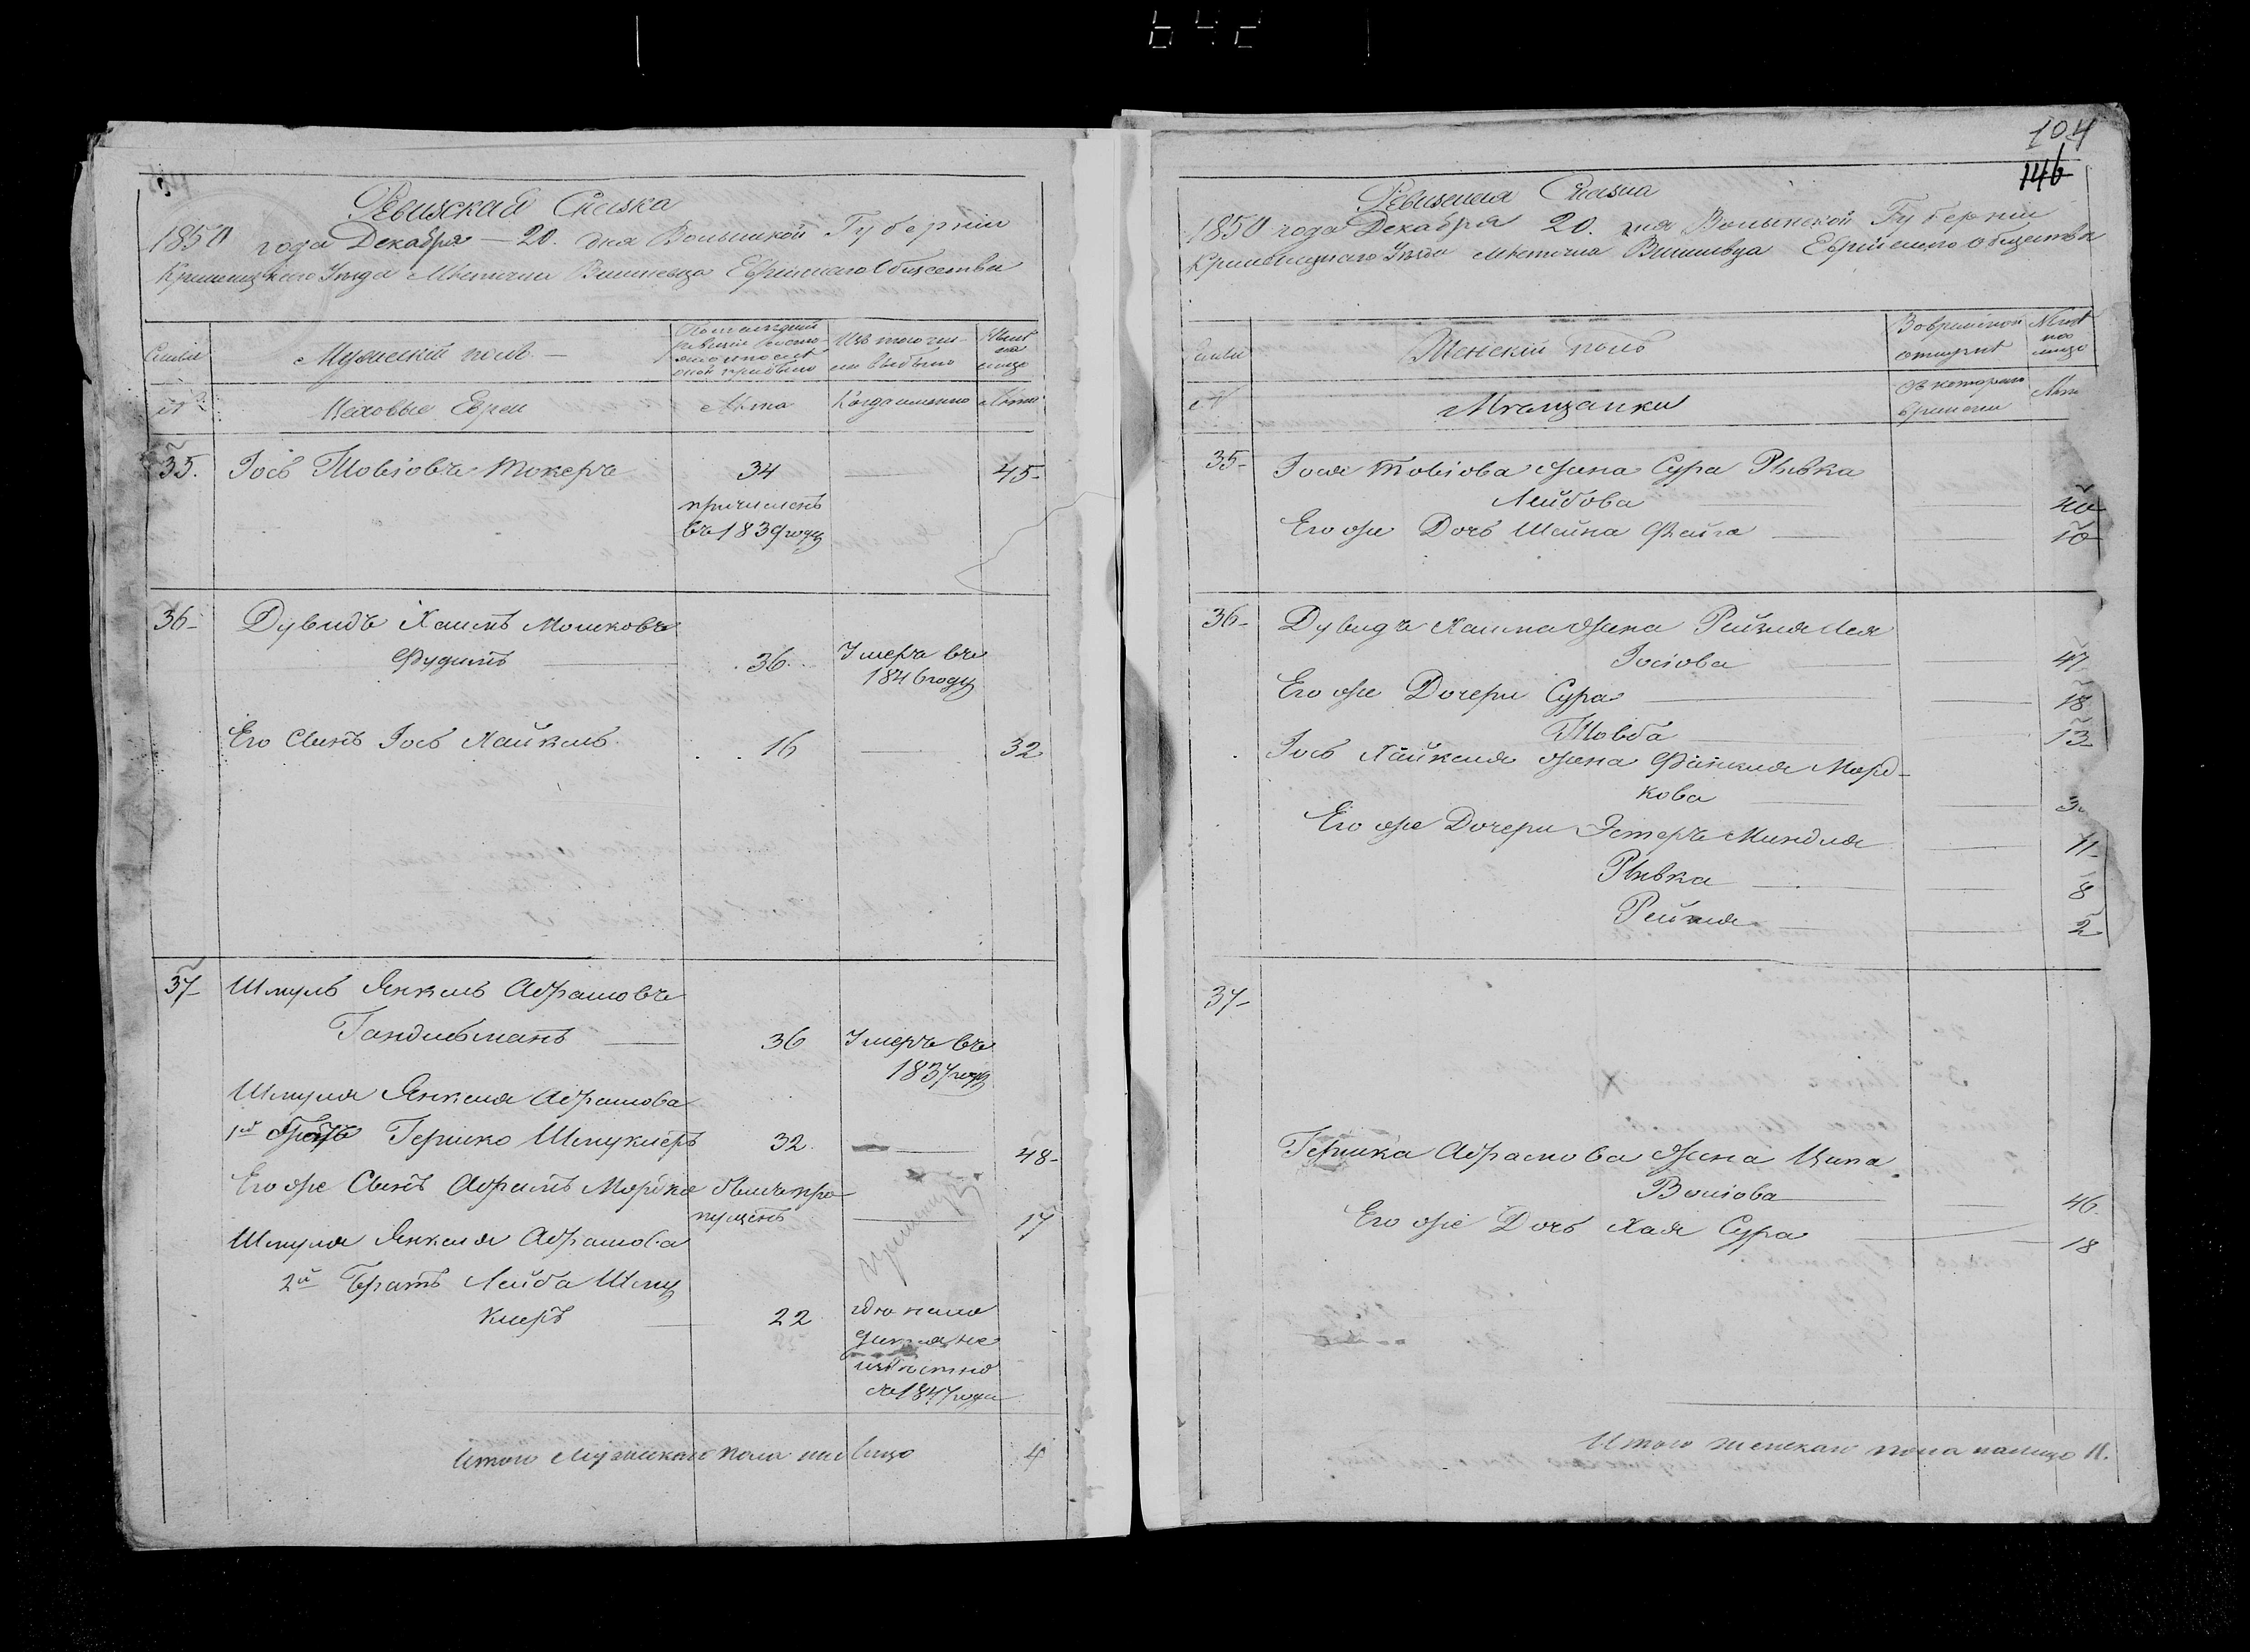 642
Ревизская Сказка
1850 года Декабря — 20. дня Волынской Губерніи
Кременецкаго Уезда Местечка Вишневца Еврейскаго Общества
Семьи
Мужескій полъ —
По последней
ревизіи состо-
яло и после
оной прибыло
Изъ того чи-
сла выбыло
Ныне
на
лицо
№
Цеховые Евреи
Лета
Когда именно
Лета
35. Іось Товіовъ Токеръ 34 — 45-
причисленъ
въ 1839 году
36- Дувидъ Хаимъ Мошковъ
Фудимъ — 36 Умеръ въ
1846 году
Его Сынъ Іось Хайкель 16 — 32
37- Шмуль Янкель Абрамовъ
Гандельманъ — 36 Умеръ въ
1837 году
Шмуля Янкеля Абрамова
1й братъ Гершко Шмуклеръ 32 — 48-
Его же Сынъ Абрамъ Мордко былъ про
пущенъ — 17
Шмуля Янкеля Абрамова
2й братъ Лейба Шму
клеръ — 22 где нахо
дится не
известно
съ 1847 года
Итого Мужескаго пола на лицо 4
104
146
Ревизская Сказка
1850 года Декабря 20. дня Волынской Губерніи
Кременецкаго Уезда Местечка Вишневца Еврейскаго Общества
Семьи
Женскій полъ
Во временной
отлучке
Ныне
на
лицо
№
Мещанки
Съ котораго
времени
Лета
35- Іося Товіова жена Сура Рывка
Лейбова — 40
Его же Дочь Шейна Фейга — 10
36- Дувидъ Хаима жена Рейзля Лея
Іосіова — 47
Его же Дочери Сура — 18
Товба — 13
Іось Хайкеля жена Фейкля Морд-
кова —
Его же Дочери Эстеръ Миндля — 11-
Рывка — 8
Рейзля — 2
37-
Гершка Абрамова жена Ципа
Воліова — 46.
Его же Дочь Хая Сура — 18
Итого женскаго пола на лицо 11.